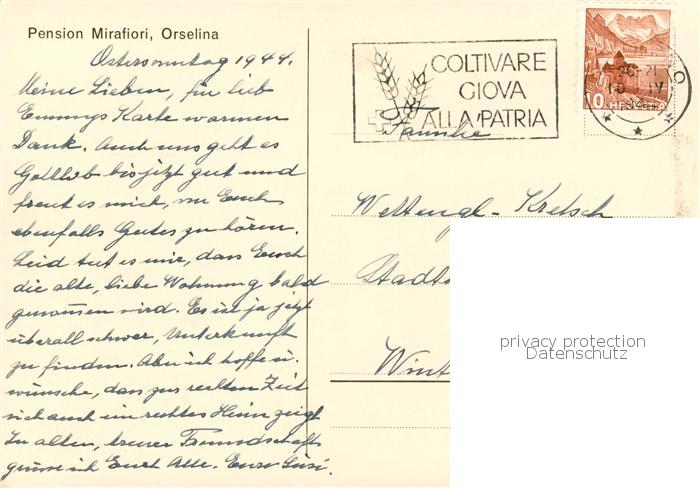 Pension Mirafiori, Orselina
Ostersonntag 1944.
Meine Lieben, für lieb
Emmys Karte warmen
Dank. Auch uns geht es
Gottlob bis jetzt gut und
freut es mich, von Euch
ebenfalls Gutes zu hören.
Leid tut es mir, dass Euch
die alte, liebe Wohnung bald
genommen wird. Es ist ja jetzt
überall schwer, Unterkunft
zu finden. Aber ich hoffe u.
wünsche, dass zur rechten Zeit
sich auch ein rechtes Heim zeigt
In alter, treuer Freundschaft
grüsse ich Euch Alle. Eure Susi.
COLTIVARE
GIOVA
ALLA PATRIA
10 HELVETIA
Familie
Wettengl-Kretsch
Stadt
Wint
privacy protection
Datenschutz